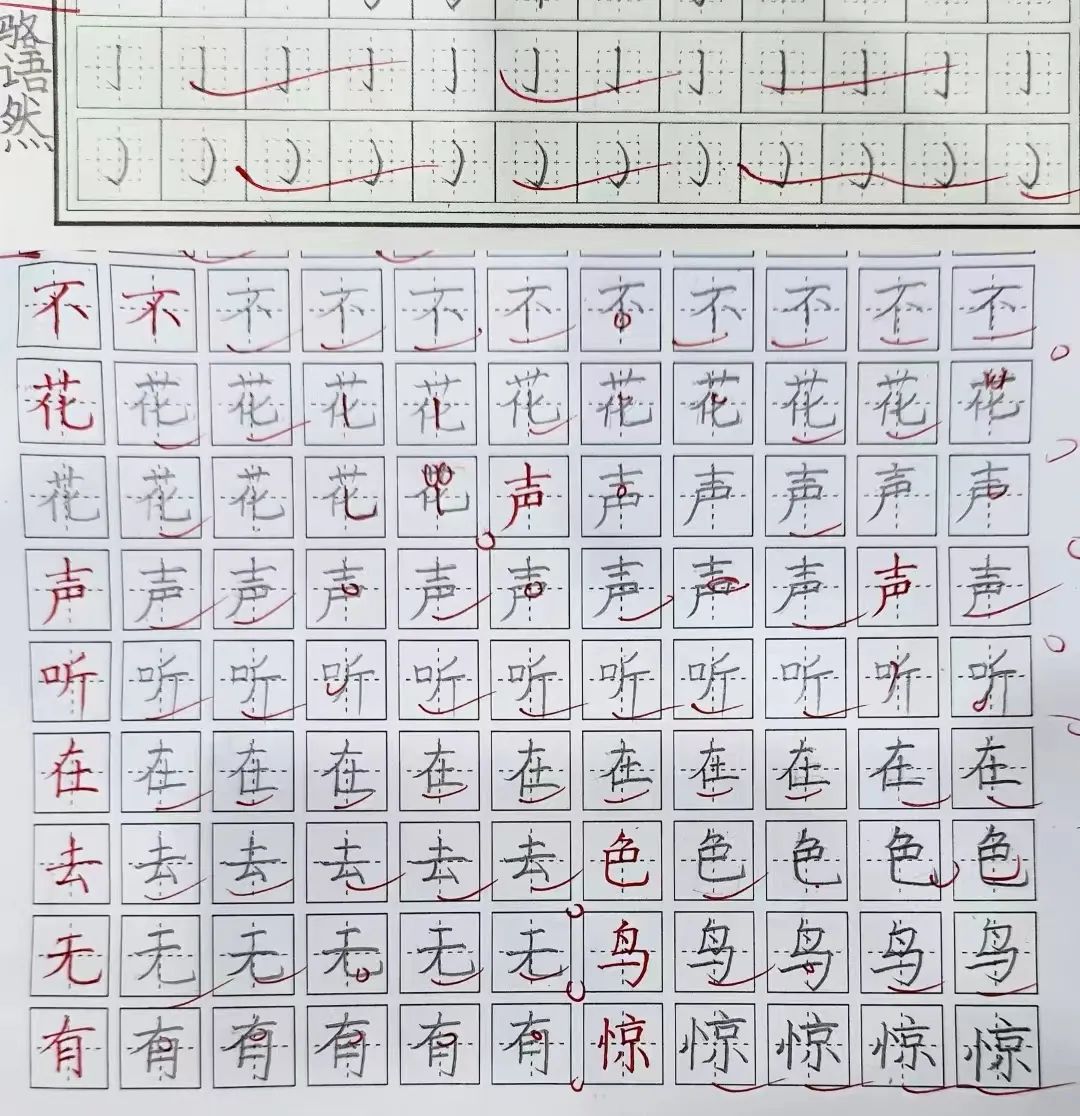 骆语然
亅亅亅亅亅亅亅亅亅亅亅亅
㇁㇁㇁㇁㇁㇁㇁㇁㇁㇁㇁㇁
不不不不不不不不不不不
花花花花花花花花花花花
花花花花花声声声声声声
声声声声声声声声声声声
听听听听听听听听听听听
在在在在在在在在在在在
去去去去去去色色色色色
无无无无无无鸟鸟鸟鸟鸟
有有有有有有惊惊惊惊惊